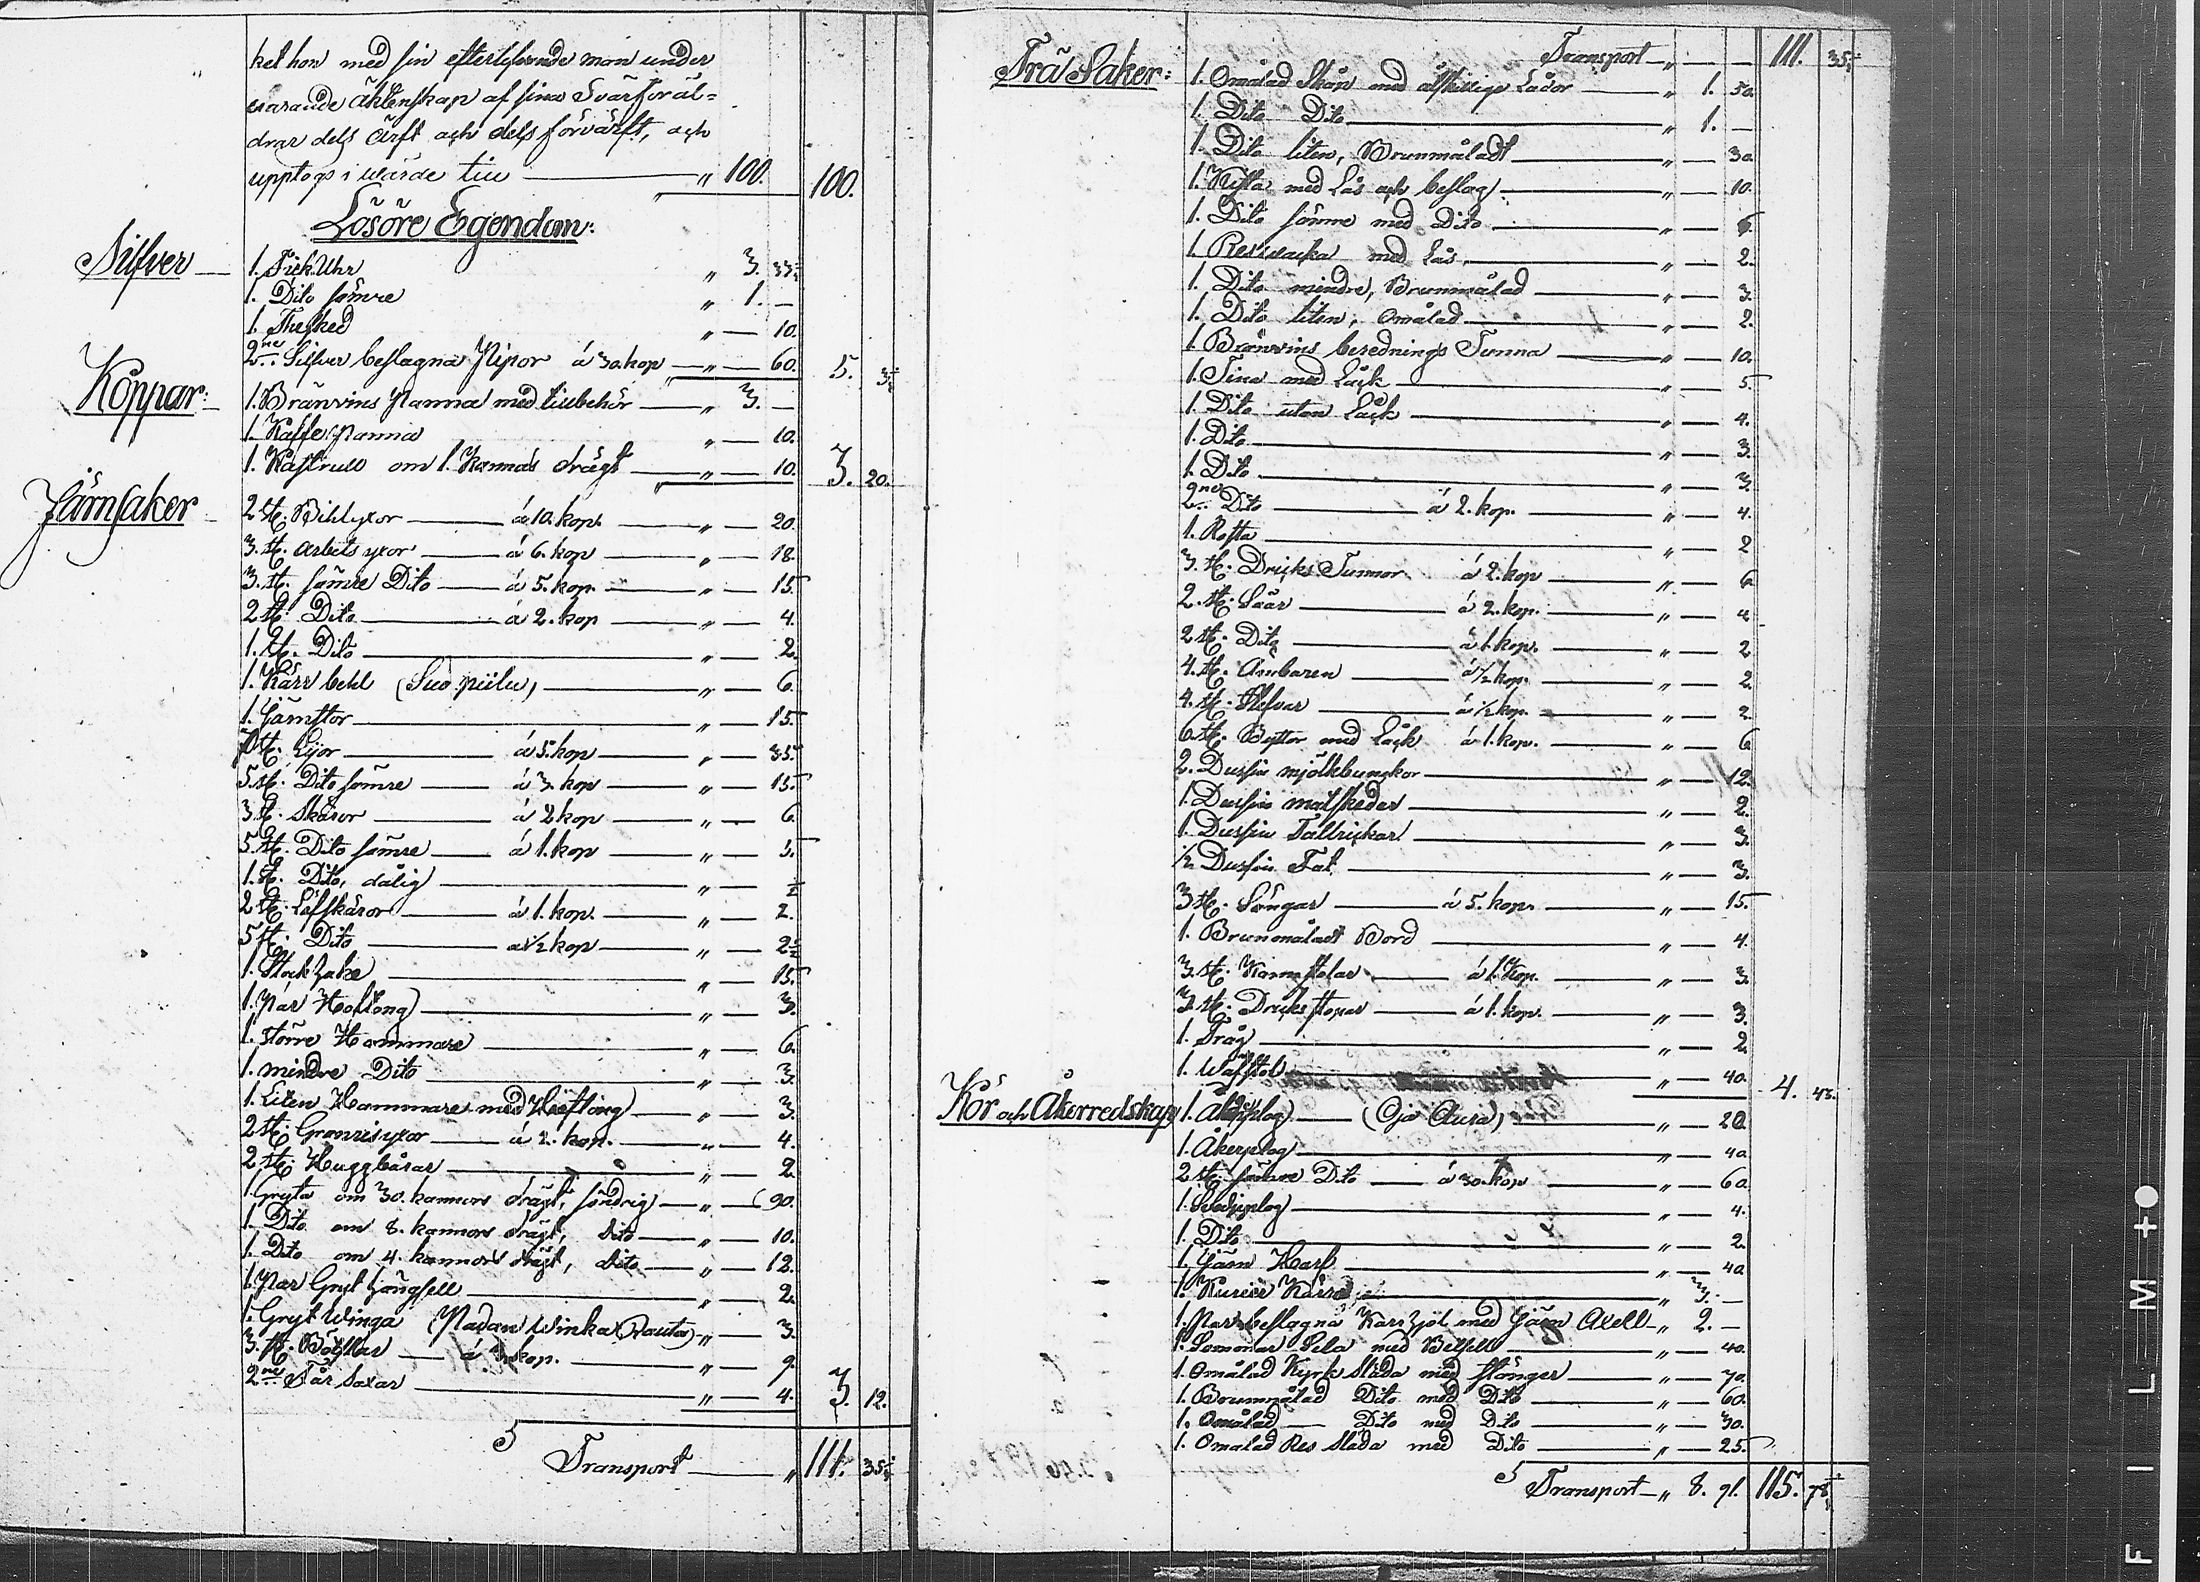 ket hon med sin efterlefvande man under
warande äktenskap af sina Svärföräl=
drar dels ärft och dels förvärft, och
upptogs i wärde till — " 100. 100.
Lösöre Egendom:
Silfver — 1. Fick Uhr " 3. 33⅓
1. Dito sämre " 1. —
1. Thesked " — 10.
2ne Silfver beslagna Pipor á 30. kop — " — 60. 5. 3⅓
Koppar: 1. Bränvins Panna med tillbehör — " 3. —
1. Kaffe panna " — 10.
1. Kastrull om 1. Kannas drägt — " — 10. 3. 20.
Järnsaker 2 st. Bihlyxor — á 10. kop. — " — 20.
3. st. arbets yxor — á 6. kop — " — 18.
3. st. sämre Dito — á 5. kop. — " — 15.
2 st. Dito — á 2. kop — " — 4.
1. st. Dito — " — 2.
1. Kärr behl (Suo piilu) — " — 6.
1. Järnstör — " — 15.
7 st. Lijor — á 5. kop — " — 35.
5. st. Dito sämre — á 3. kop — " — 15.
3 st. Skäror — á 2 kop — " — 6.
5. st. Dito sämre — á 1. kop — " — 5.
1. st. Dito, dålig — " — ½
2 st. Löfskäror — á 1. kop. — " — 2.
5 st. Dito — á ½ kop — " — 2½
1. — " — 15.
1. Pär Hoftong — " — 3.
1. större Hammare — " — 6.
1. mindre Dito — " — 3.
1. Liten Hammare med — " — 3.
2 st. Granrisyxor — á 2. kop. — " — 4.
2 st. — " — 2.
1. Gryta om 30. kannors drägt, söndrig — " — 90.
1. Dito om 8. kannors drägt, dito — " — 10.
1. Dito om 4. kannors drägt, dito — " — 12.
1. Par Gryt — " — 2.
1. Gryt Winga (Padan Winka Rauta) — " — 3.
3. st. — á 3. kop. — " — 9.
2ne Får Saxar — " — 4. 3. 12.
Transport — " 111. 35⅚
Trä Saker: Transport — " — — 111. 35⅚
1. Omålad Skåp med åtskillige Lådor — " 1. 50.
1. Dito Dito — " 1. —
1. Dito liten, Brunmåladt — " — 30.
1. Kista med Lås och beslag — " — 10.
1. Dito sämre med Dito — " — 6.
1. Res med Lås — " — 2.
1. Dito mindre, Brunmålad — " — 3.
1. Dito liten, Omålad — " — 2.
1. Bränvins berednings Tunna — " — 10.
1. Tina med Låck — " — 5.
1. Dito utan Låck — " — 4.
1. Dito — " — 3.
1. Dito — " — 3.
2ne Dito — á 2. kop. — " — 4.
1. — " — 2
3. st. Dricks Tunnor á 2. kop — " — 6.
2. st. Såår — á 2. kop. — " — 4
2 st. Dito — á 1. kop. — " — 2
4. st. Ämbaren — á ½ kop. — " — 2.
4. st. — á ½ kop. — " — 2.
6 st. Byttor med Låck á 1. kop. — " — 6
2. Dussin mjölkbunkor — " — 12.
1. Dussin matskedar — " — 2.
1. Dussin Tallrickar — " — 3.
½ Dussin Fat — " — 3.
3 st. Sängar — á 5. kop. — " — 15.
1. Brunmåladt Bord — " — 4.
3. st. Karmstolar — á 1. kop. — " — 3.
3 st. Dricks stopar — á 1. kop. — " — 3.
1. Tråg — " — 2
1. Wäfstol — " — 40. 4. 43.
Kör och Åkerredskap 1. — (Oja Aura) — " — 20.
1. Åkerplog — " — 40
2 st. sämre Dito — á 30. kop — " — 60.
1. — " — 4.
1. Dito — " — 2.
1. Järn Harf — " — 40
1. Kärra — " 3. —
1. Par beslagna Kärr hjol med Järn Axell — " 2. —
1. Sommar Sela med — " — 40.
1. Omålad Kyrk Släda med stänger — " — 70.
1. Brunmålad Dito med Dito — " — 60.
1. Omålad — Dito med Dito — " — 30.
1. Omålad Res släda med Dito — " — 25.
Transport — " 8. 91. 115. 78⅚
FILM